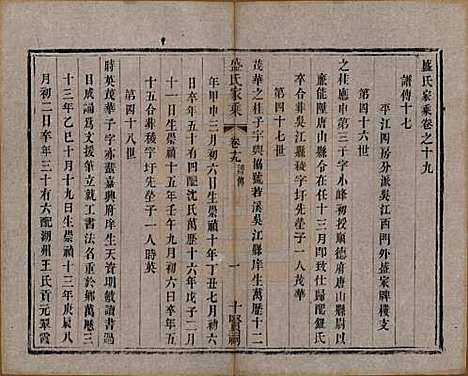 盛氏家乘卷之十九
譜傳十七
平江四房分派吳江西門外盛家牌樓支
第四十六世
之柱應申第三子字小峰初授順德府唐山縣尉以
廉能陞唐山縣令任十三月卽致仕歸配鍾氏
卒合葬稜字圩先塋子一人茂華
第四十七世
茂華之柱子字與協號若溪吳江縣庠生萬歷十二
盛氏家乘
卷十九 譜傳
一
十賢祠
年甲申二月初六日生崇禎十年丁丑七月初六
日卒年五十有四配沈氏萬歷十六年戊子二月
十一日生崇禎十五年壬午九月初六日卒年五
十五合葬稜字圩先塋子一人時英
第四十八世
時英茂華子字亦蓋嘉興府庠生天資明敏讀書過
目成誦爲文援筆立就工書法名重於鄉萬歷三
十三年乙巳十月十九日生崇禎十三年庚辰八
月初二日卒年三十有六配湖州王氏貢元翠霞